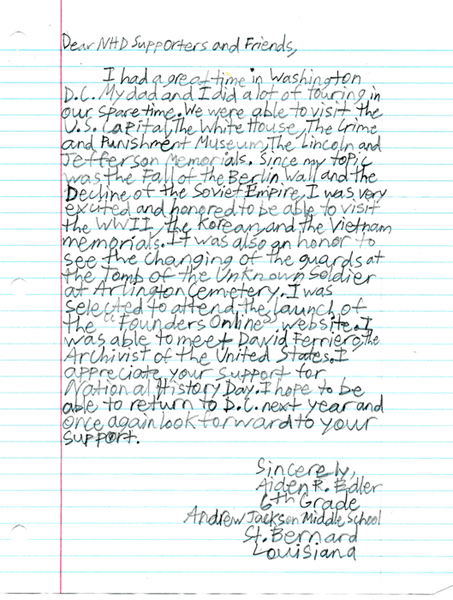 Dear NHD Supporters and Friends,
I had a great time in Washington
D.C. My dad and I did a lot of touring in
our spare time. We were able to visit the
U.S. Capital, The White House, The Crime
and Punishment Museum, The Lincoln and
Jefferson Memorials. Since my topic
was the Fall of the Berlin Wall and the
Decline of the Soviet Empire, I was very
excited and honored to be able to visit
the WWII, the Korean, and the Vietnam
memorials. It was also an honor to
see the changing of the guards at
the Tomb of the Unknown Soldier
at Arlington Cemetery. I was
selected to attend the launch of
the "Founders Online" website. I
was able to meet David Ferriero, the
Archivist of the United States. I
appreciate your support for
National History Day. I hope to be
able to return to D.C. next year and
once again look forward to your
support.
Sincerely,
Aiden R. Edler
6th Grade
Andrew Jackson Middle School
St. Bernard
Louisiana